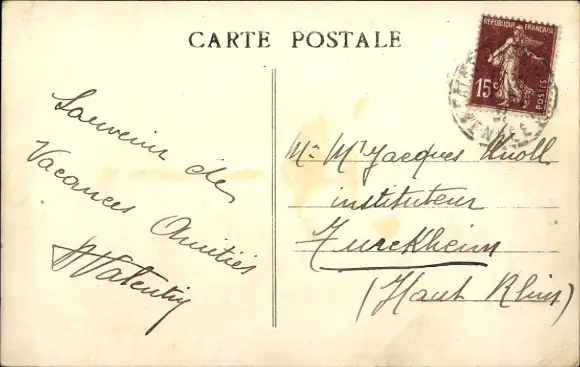 CARTE POSTALE
RÉPUBLIQUE FRANÇAISE
15c
POSTES
VENDÉE
Souvenir de
Vacances Amitiés
Valentin
Mr Jacques Knoll
instituteur
Turckheim
(Haut Rhin)